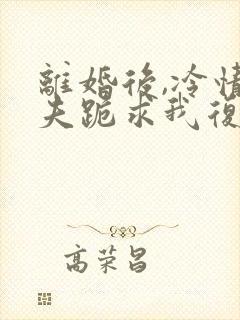 離婚後,冷情
夫跪求我復
高荣昌